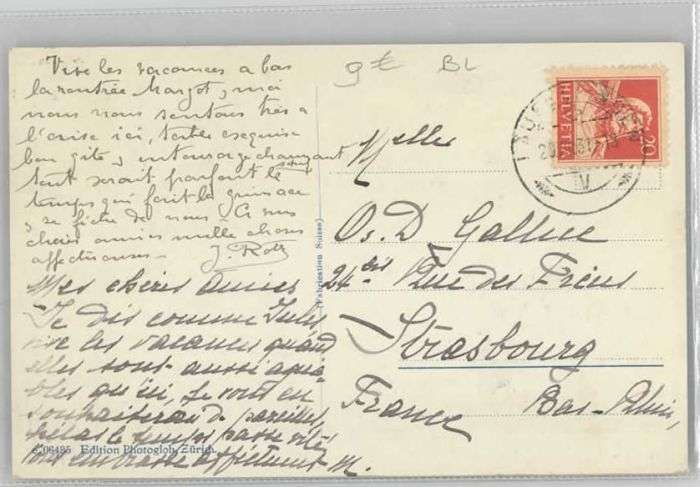 Vive les vacances a bas
la rentrée Margot, moi
nous nous sentons très à
l'aise ici, table exquise
bon gîte, entourage changeant
tout serait parfait le
temps qui fait la grimace
se fiche de nous. Ci mes
chères amies mille choses
affectueuses. J. Roth
Mes chères amies
Je dis comme Jules
vive les vacances quand
elles sont aussi agréa-
bles qu'ici, Je vous en
souhaiterai de pareilles
hélas le temps passe vite
vous embrasse affectment M.
9€ BL
Melles
Os. D Gallice
24bis Rue des Frères
Strasbourg
France Bas-Rhin
HELVETIA
20
IV
(Fabrication Suisse)
06485 Edition Photoglob, Zürich.